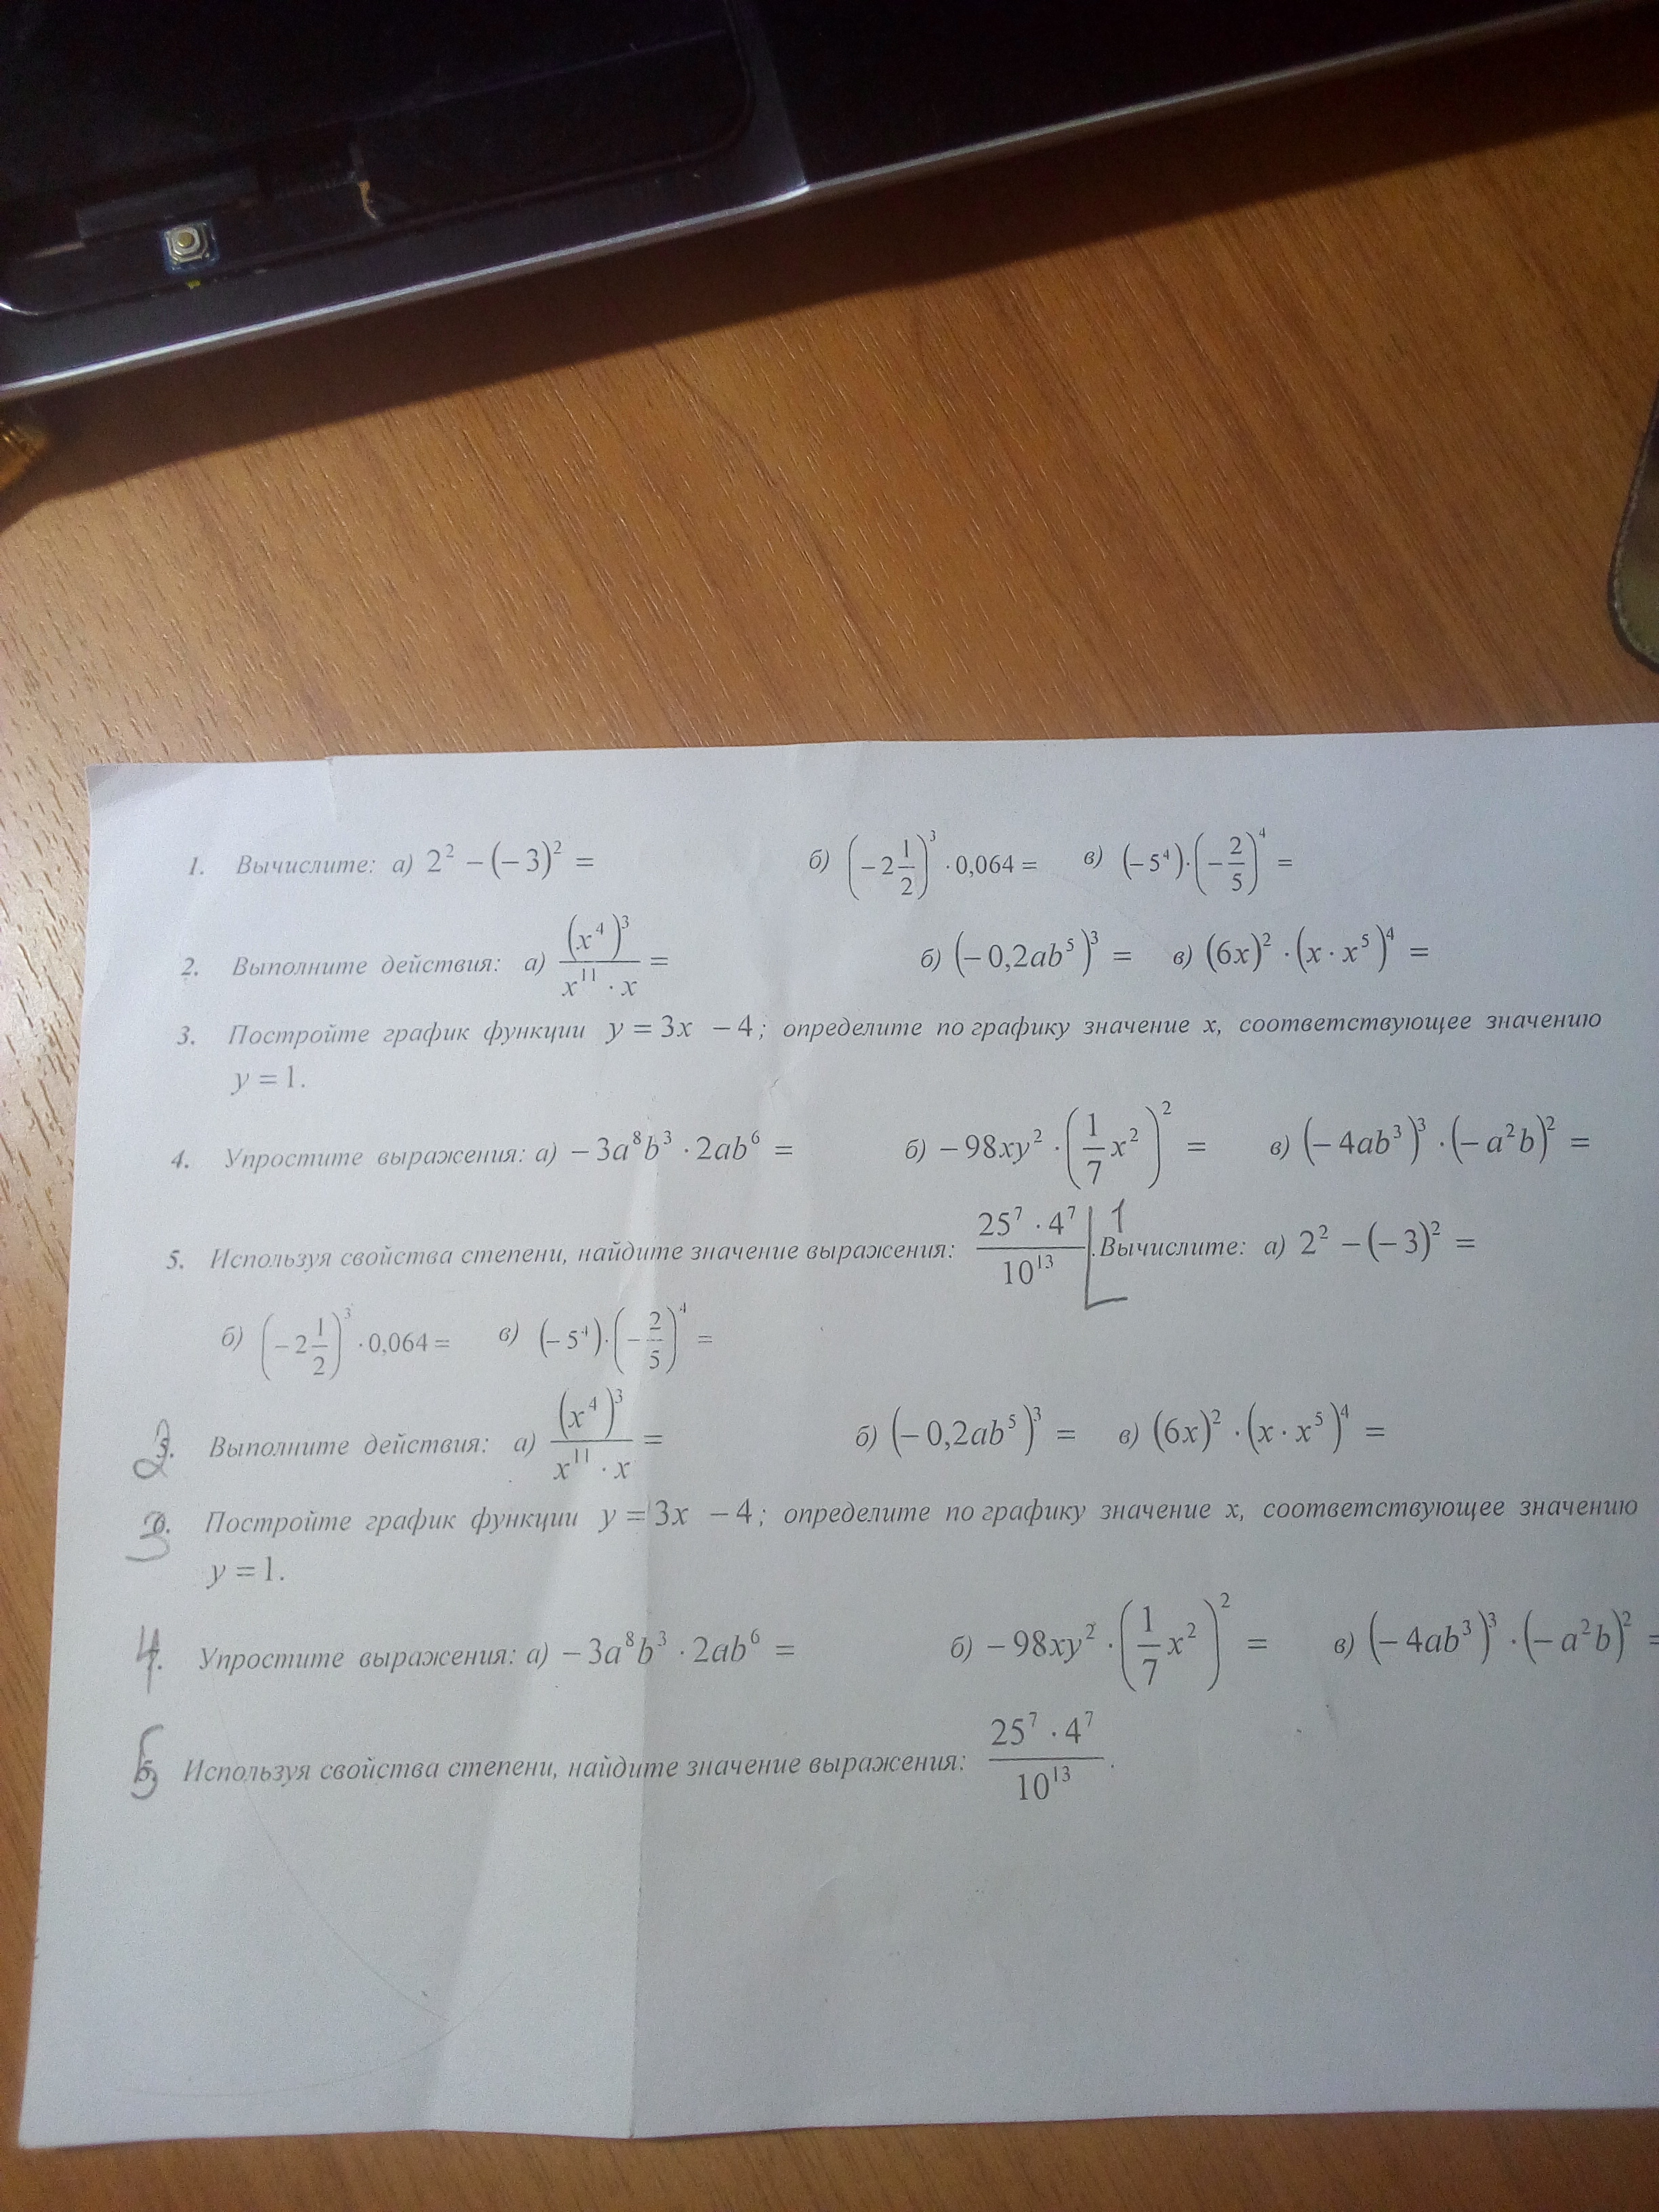 1. Вычислите: а) 2² − (− 3)² = б) (− 2 1/2)³ · 0,064 = в) (− 5⁴) · (− 2/5)⁴ =
2. Выполните действия: а) (x⁴)³ / (x¹¹ · x) = б) (− 0,2ab⁵)³ = в) (6x)² · (x · x⁵)⁴ =
3. Постройте график функции y = 3x − 4; определите по графику значение x, соответствующее значению
y = 1.
4. Упростите выражения: а) − 3a⁸b³ · 2ab⁶ = б) − 98xy² · (1/7 x²)² = в) (− 4ab³)³ · (− a²b)² =
5. Используя свойства степени, найдите значение выражения: 25⁷ · 4⁷ / 10¹³ 1 .Вычислите: а) 2² − (− 3)² =
б) (− 2 1/2)³ · 0,064 = в) (− 5⁴) · (− 2/5)⁴ =
2. Выполните действия: а) (x⁴)³ / (x¹¹ · x) = б) (− 0,2ab⁵)³ = в) (6x)² · (x · x⁵)⁴ =
3. Постройте график функции y = 3x − 4; определите по графику значение x, соответствующее значению
y = 1.
4. Упростите выражения: а) − 3a⁸b³ · 2ab⁶ = б) − 98xy² · (1/7 x²)² = в) (− 4ab³)³ · (− a²b)² =
5 Используя свойства степени, найдите значение выражения: 25⁷ · 4⁷ / 10¹³ .